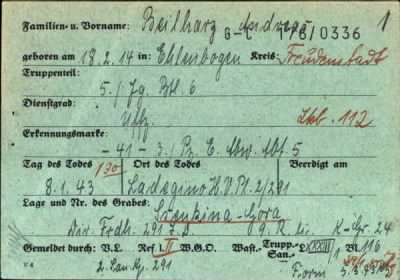 Familien- u. Vorname: Beilharz Andreas 1
G-C 176/0336
geboren am 18.2.14 in: Ehlenbogen Kreis: Freudenstadt
Truppenteil:
5./Jg. Btl. 6
Dienstgrad:
Uffz. 112
Erkennungsmarke:
-41- 3./Pz. E. Abw. Abt. 5
Tag des Todes 130 Ort des Todes Beerdigt am
8.1.43 Ladogino H.V.Pl. 2/291
Lage und Nr. des Grabes: Srenkina-Gora
Div. Frdh. 291 9. R. K-Gr. 24
Gemeldet durch: V.L. Ref I.II W.G.O. Wast.- Trupp.- San.- L. XXXII, Bl 116
2. San. Kp. 291 Form
V 4